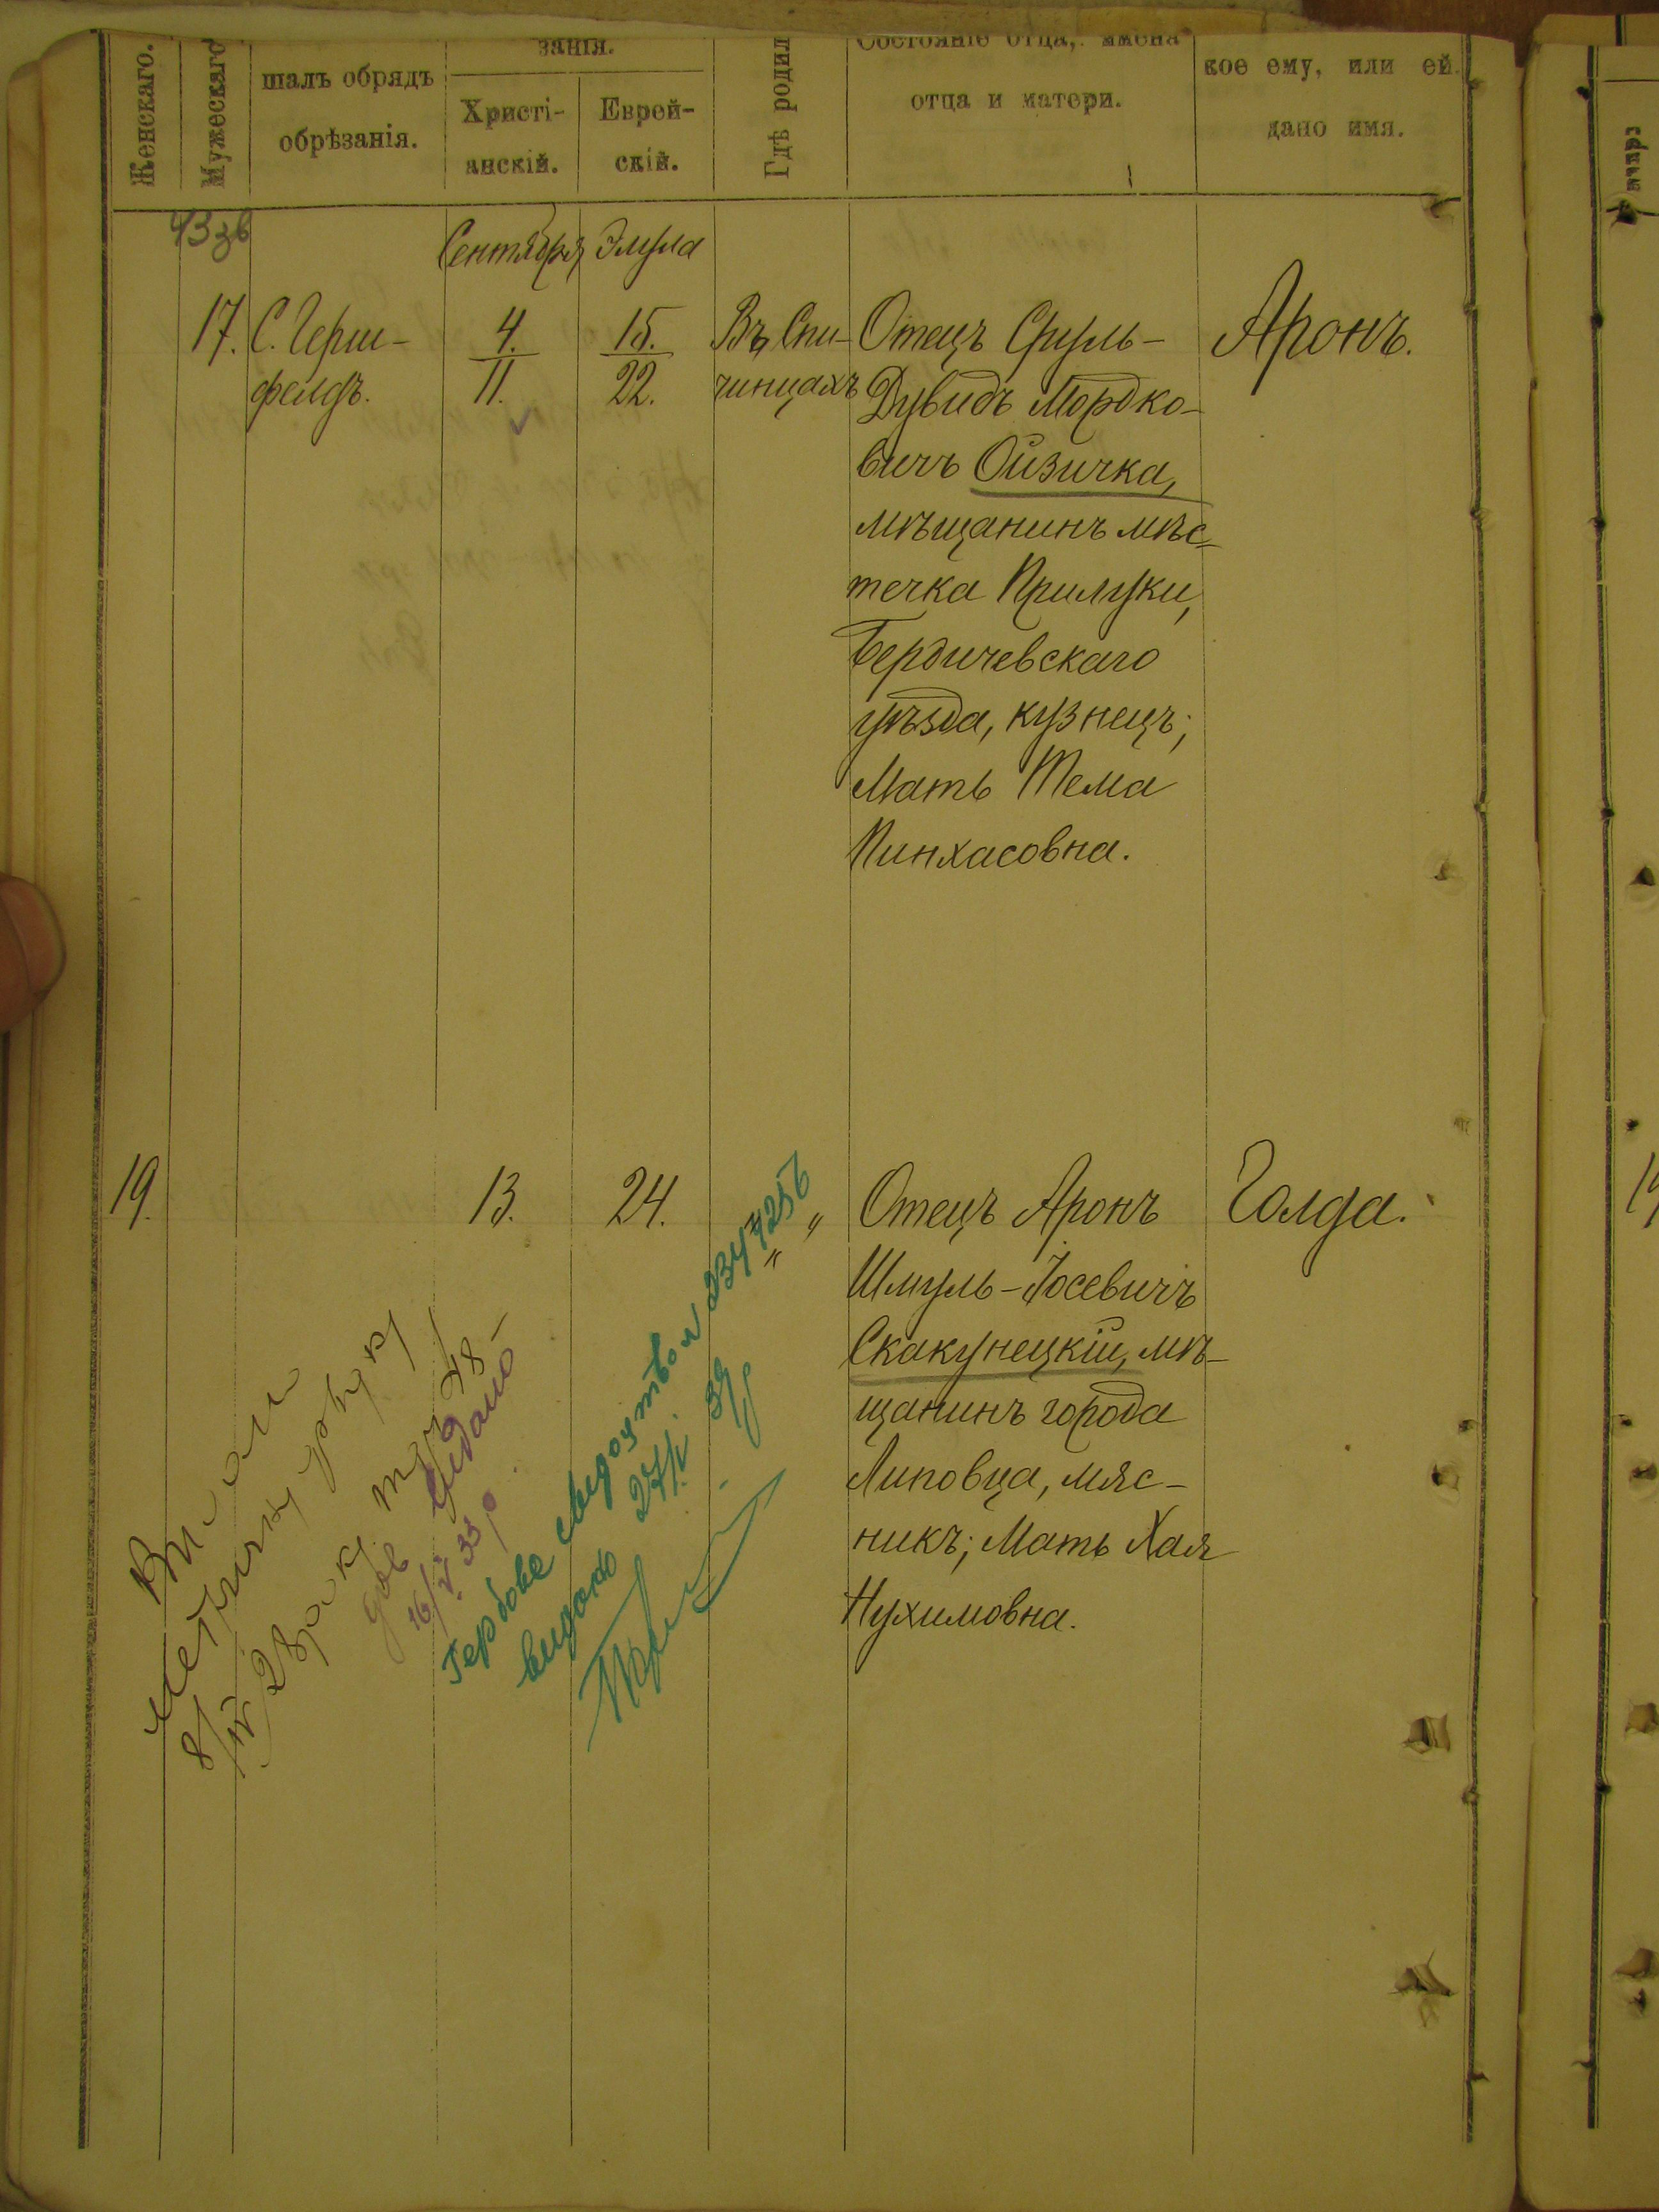 Женскаго.
Мужескаго
шалъ обрядъ
обрѣзанія.
занія.
Христі-
анскій.
Еврей-
скій.
Гдѣ родил
Состояніе отца, имена
отца и матери.
кое ему, или ей
дано имя.
Сентября Элула
17. С. Герш-
фелдъ.
4.
11.
15.
22.
Въ Спи-
чинцахъ
Отецъ Сруль-
Дувидъ Мордко-
вичъ Ойзичка,
мѣщанинъ мѣс-
течка Прилуки,
Бердичевскаго
уѣзда, кузнецъ;
Мать Тема
Пинхасовна.
Аронъ.
19.
13.
24.
" "
Отецъ Аронъ
Шмуль-Іосевичъ
Скакунецкій, мѣ-
щанинъ города
Липовца, мяс-
никъ; Мать Хая
Нухимовна.
Голда.
метричну
8/IV 28 року
видано
16/V 33 р.
Гербове свидоцтво
видано 27/I 39 р